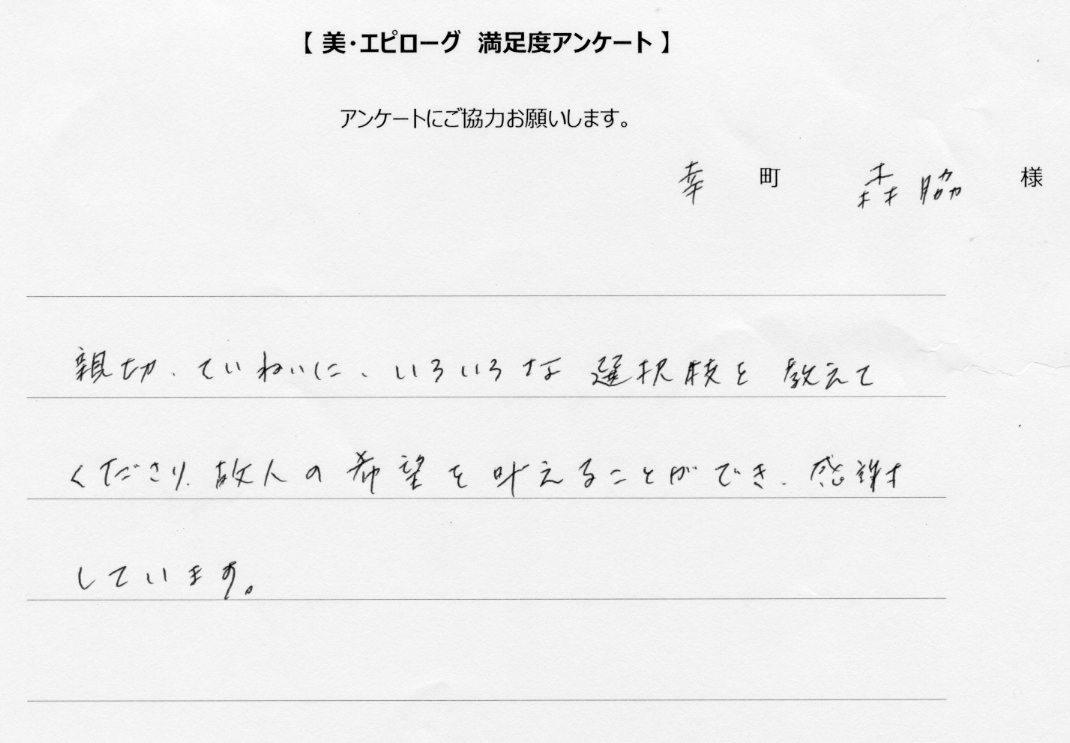 【 美・エピローグ 満足度アンケート 】
アンケートにご協力お願いします。
幸 町 森脇 様
親切、ていねいに、いろいろな選択肢を教えて
くださり、故人の希望を叶えることができ、感謝
しています。